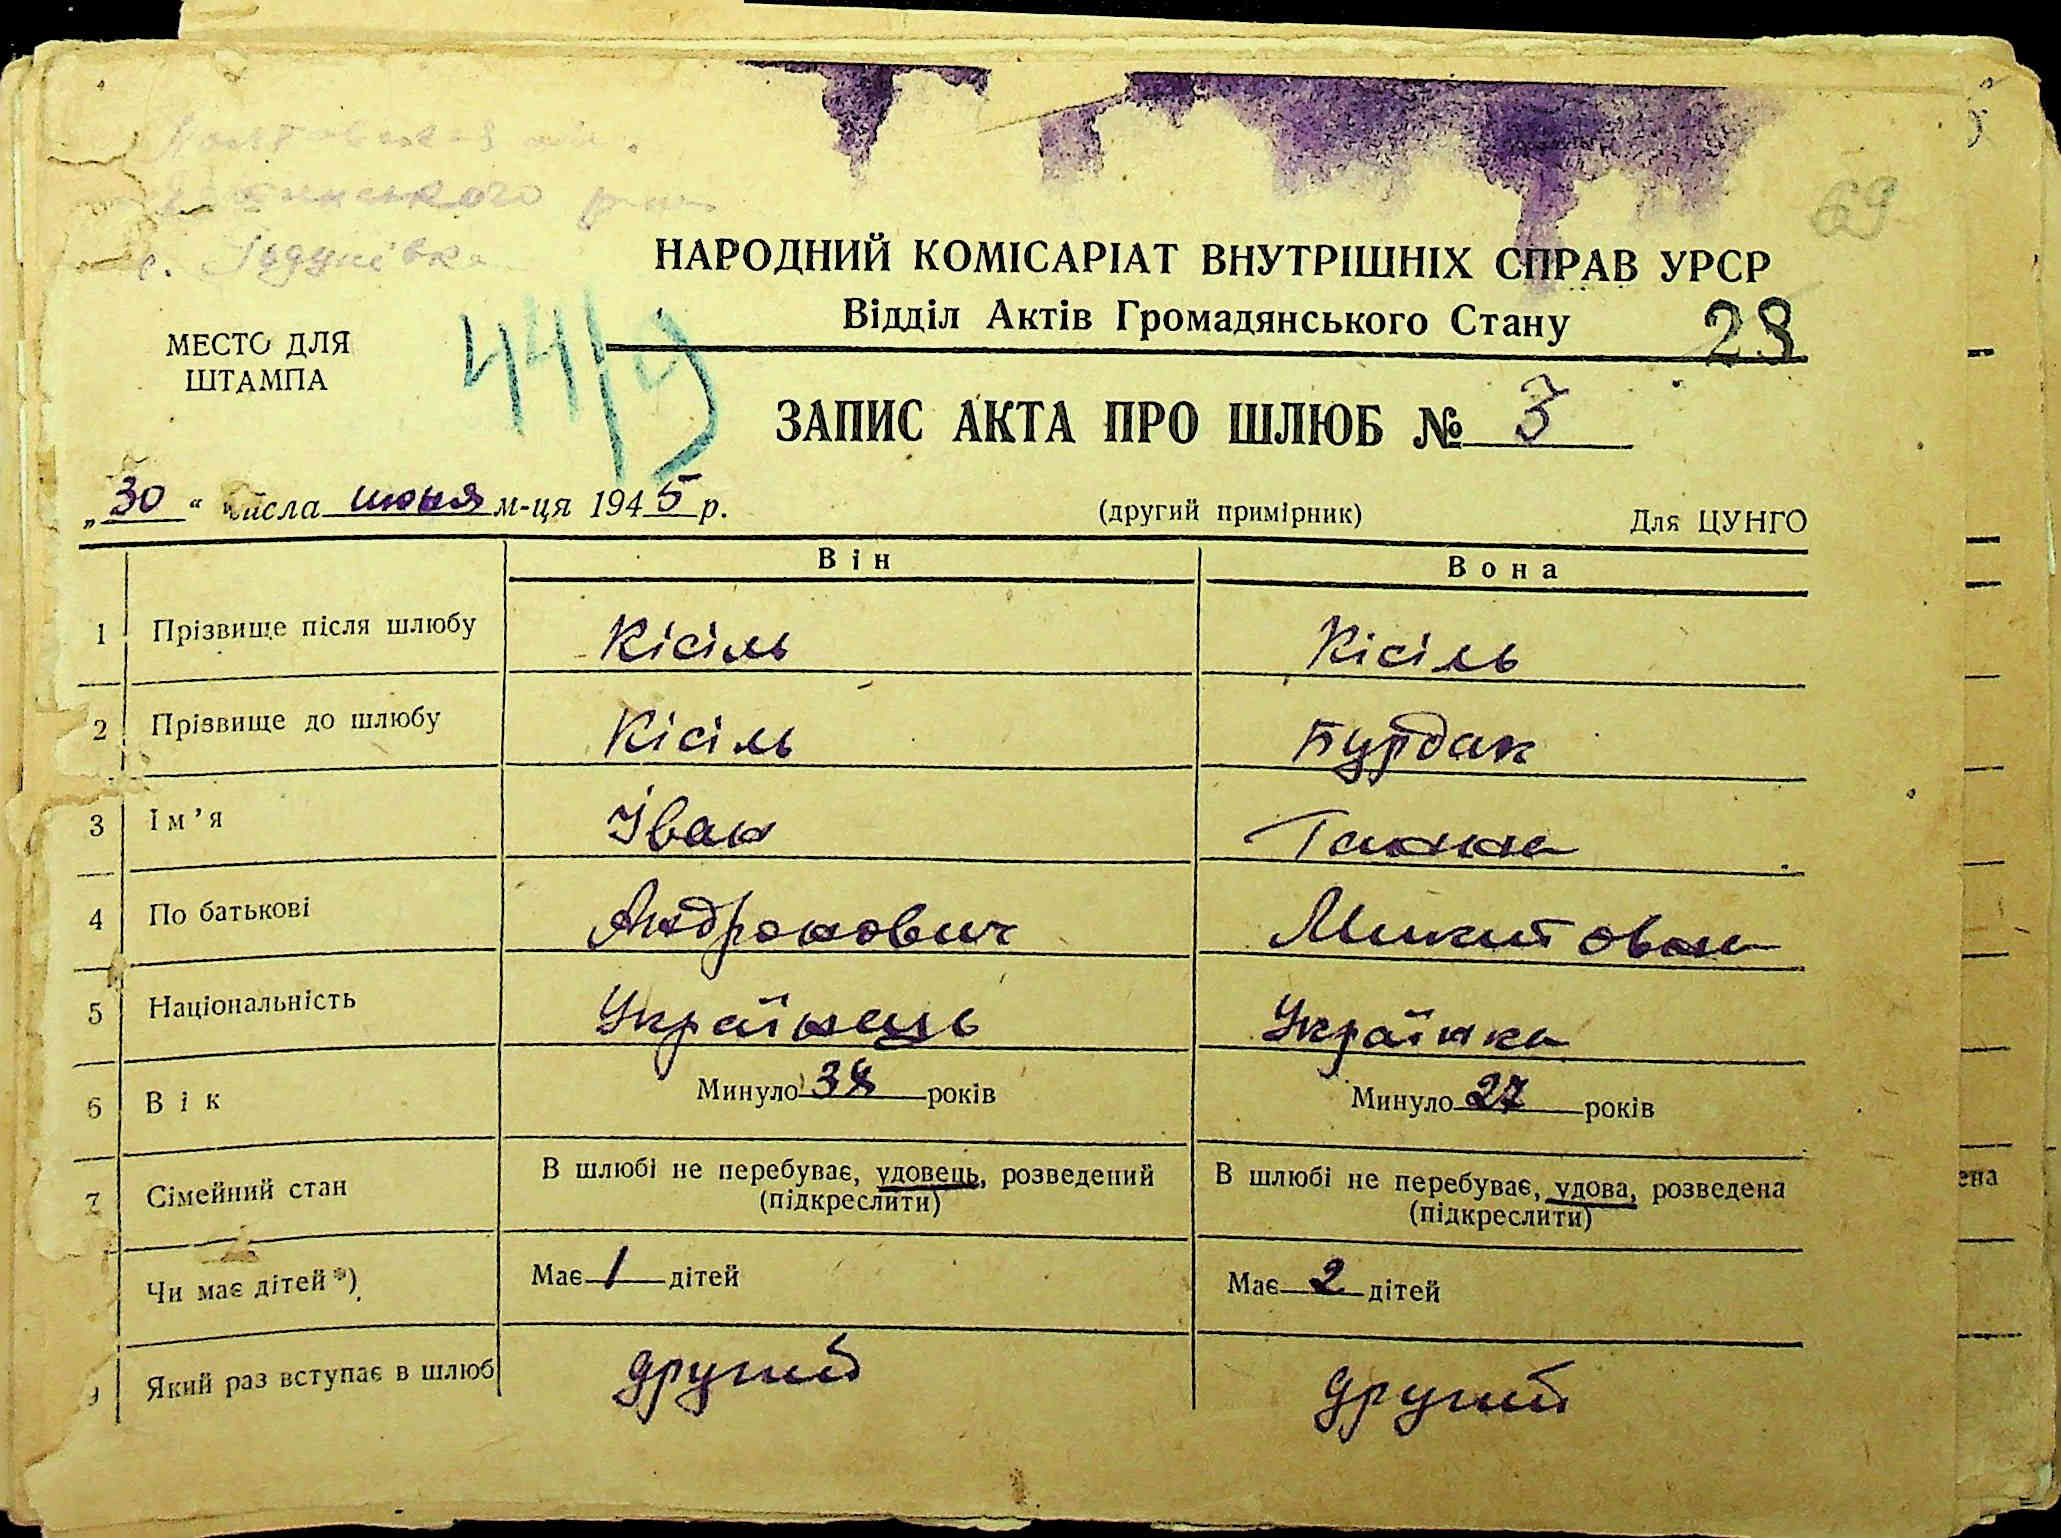 69
с. Годунівка
НАРОДНИЙ КОМІСАРІАТ ВНУТРІШНІХ СПРАВ УРСР
Відділ Актів Громадянського Стану 28
МЕСТО ДЛЯ
ШТАМПА
44/9
ЗАПИС АКТА ПРО ШЛЮБ № 3
„30“ числа июня м-ця 1945 р. (другий примірник) Для ЦУНГО
Він Вона
1 Прізвище після шлюбу Кісіль Кісіль
2 Прізвище до шлюбу Кісіль Бурдак
3 Ім'я Іван Ганна
4 По батькові Андронович Микитовна
5 Національність Українець Українка
6 Вік Минуло 38 років Минуло 27 років
7 Сімейний стан В шлюбі не перебуває, удовець, розведений В шлюбі не перебуває, удова, розведена
(підкреслити) (підкреслити)
Чи має дітей*) Має 1 дітей Має 2 дітей
9 Який раз вступає в шлюб другий другий